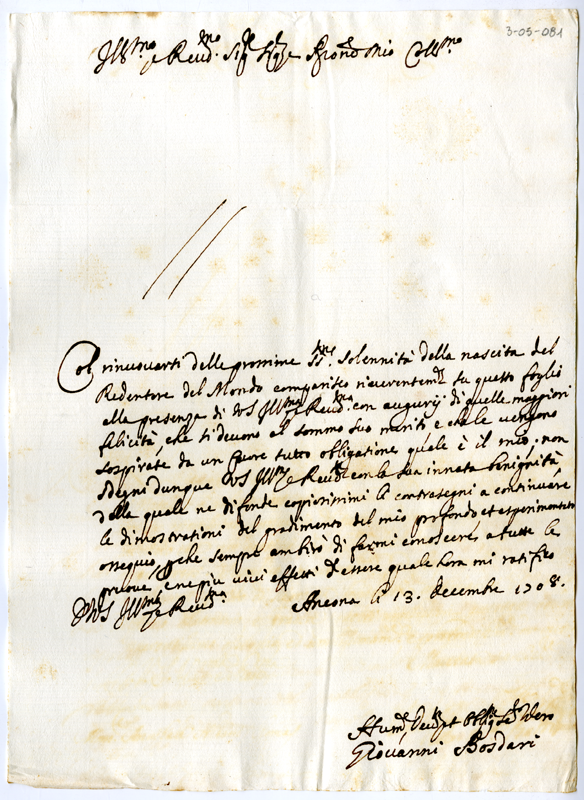 3-05-081
Ill.mo e Reud.mo Sig.r Sig.r e Pron.e mio Coll.mo
Col rinuouarsi delle prossime SS.me solennità della nascita del
Redentore del Mondo comparisco riuerentem.te su questo foglio
alla presenza di VS Ill.ma e Reud.ma con augurij di quelle maggiori
felicità, che si deuono al sommo suo merito e che le uengono
sospirate da un Cuore tutto obligatione, quale è il mio. non
sdegni dunque VS Ill.ma e Reud.ma con la sua innata benignità
della quale ne difonde copiosissimi li contrasegni a continuare
le dimostrationi del gradimento del mio profondo et esperimentato
ossequio, che sempre ambirò di farmi conoscere, a tutte le
pruoue, e ne più uiui effetti d'essere quale hora mi ratifico
D VS Ill.ma e Reud.ma Ancona li 13. decembre 1708.
Hum.o Deu.mo et Oblig.mo Se.re Vero
Giovanni Bosdari